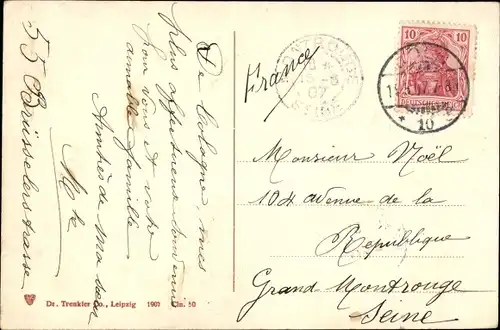 De Cologne, mes
plus affectueux souvenirs
Pour vous et votre
aimable famille
Amitiés de Ma
55 Brüsselerstrasse
France
Monsieur Noël
104 avenue de la
Republique
Grand Montrouge
Seine
10 10
DEUTSCHES
* 10
SEINE
07
Dr. Trenkler Co., Leipzig 1907 Cln. 50